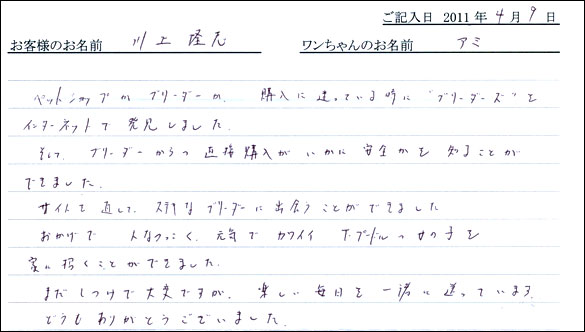 ご記入日 2011年4月9日
お客様のお名前 川上 隆志 ワンちゃんのお名前 アミ
ペットショップか ブリーダーか、購入に迷っている時に "ブリーダーズ" を
インターネットで 発見しました.
そして、ブリーダーからの 直接購入が いかに 安全かを 知ることが
できました.
サイトを通して、ステキな ブリーダーに出会うことができました
おかげで 人なつっこく、元気で カワイイ T.プードルの女の子を
家に招くことができました.
まだ しつけで大変ですが、楽しい毎日を一緒に送っています
どうも ありがとうございました.